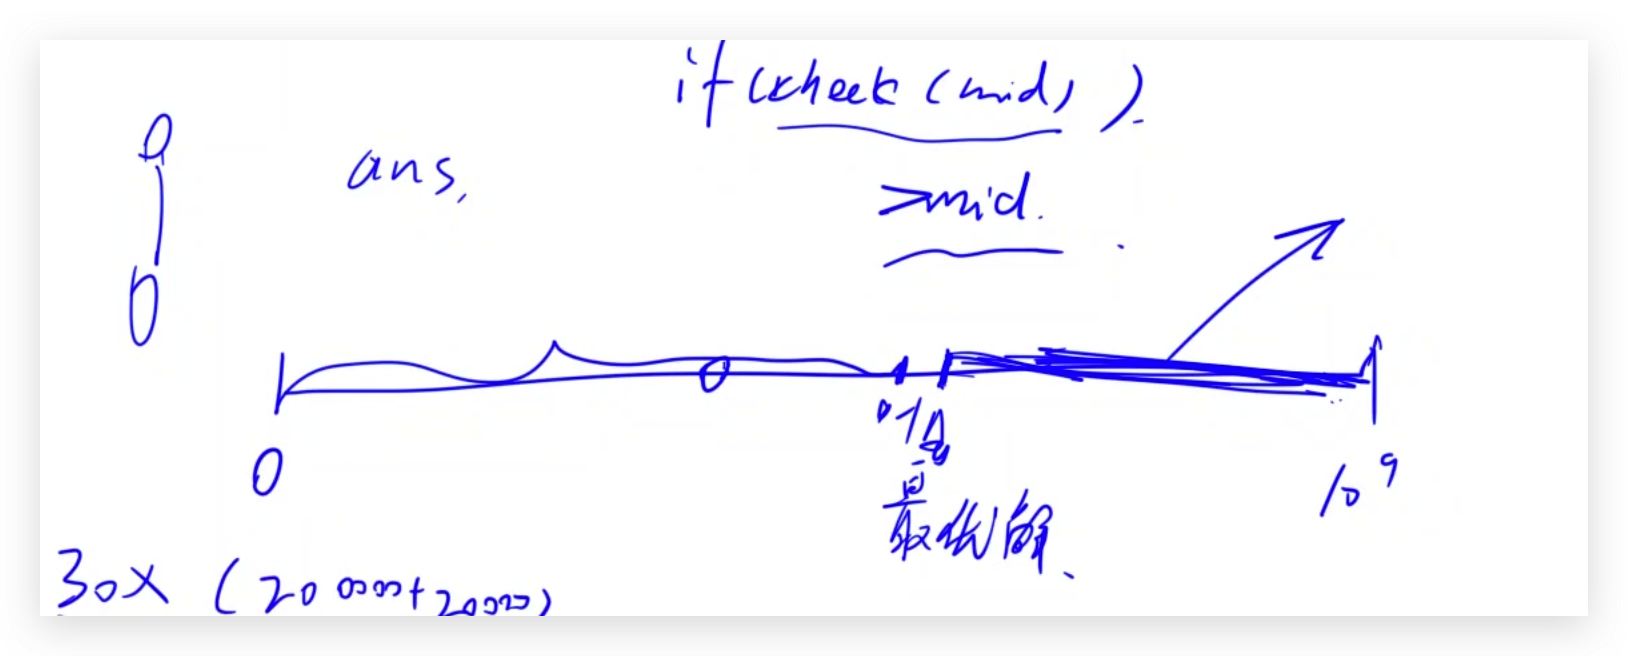 if (check (mid) ).
ans,
>mid.
0
10^9
最优解、
30x (20000+20000)